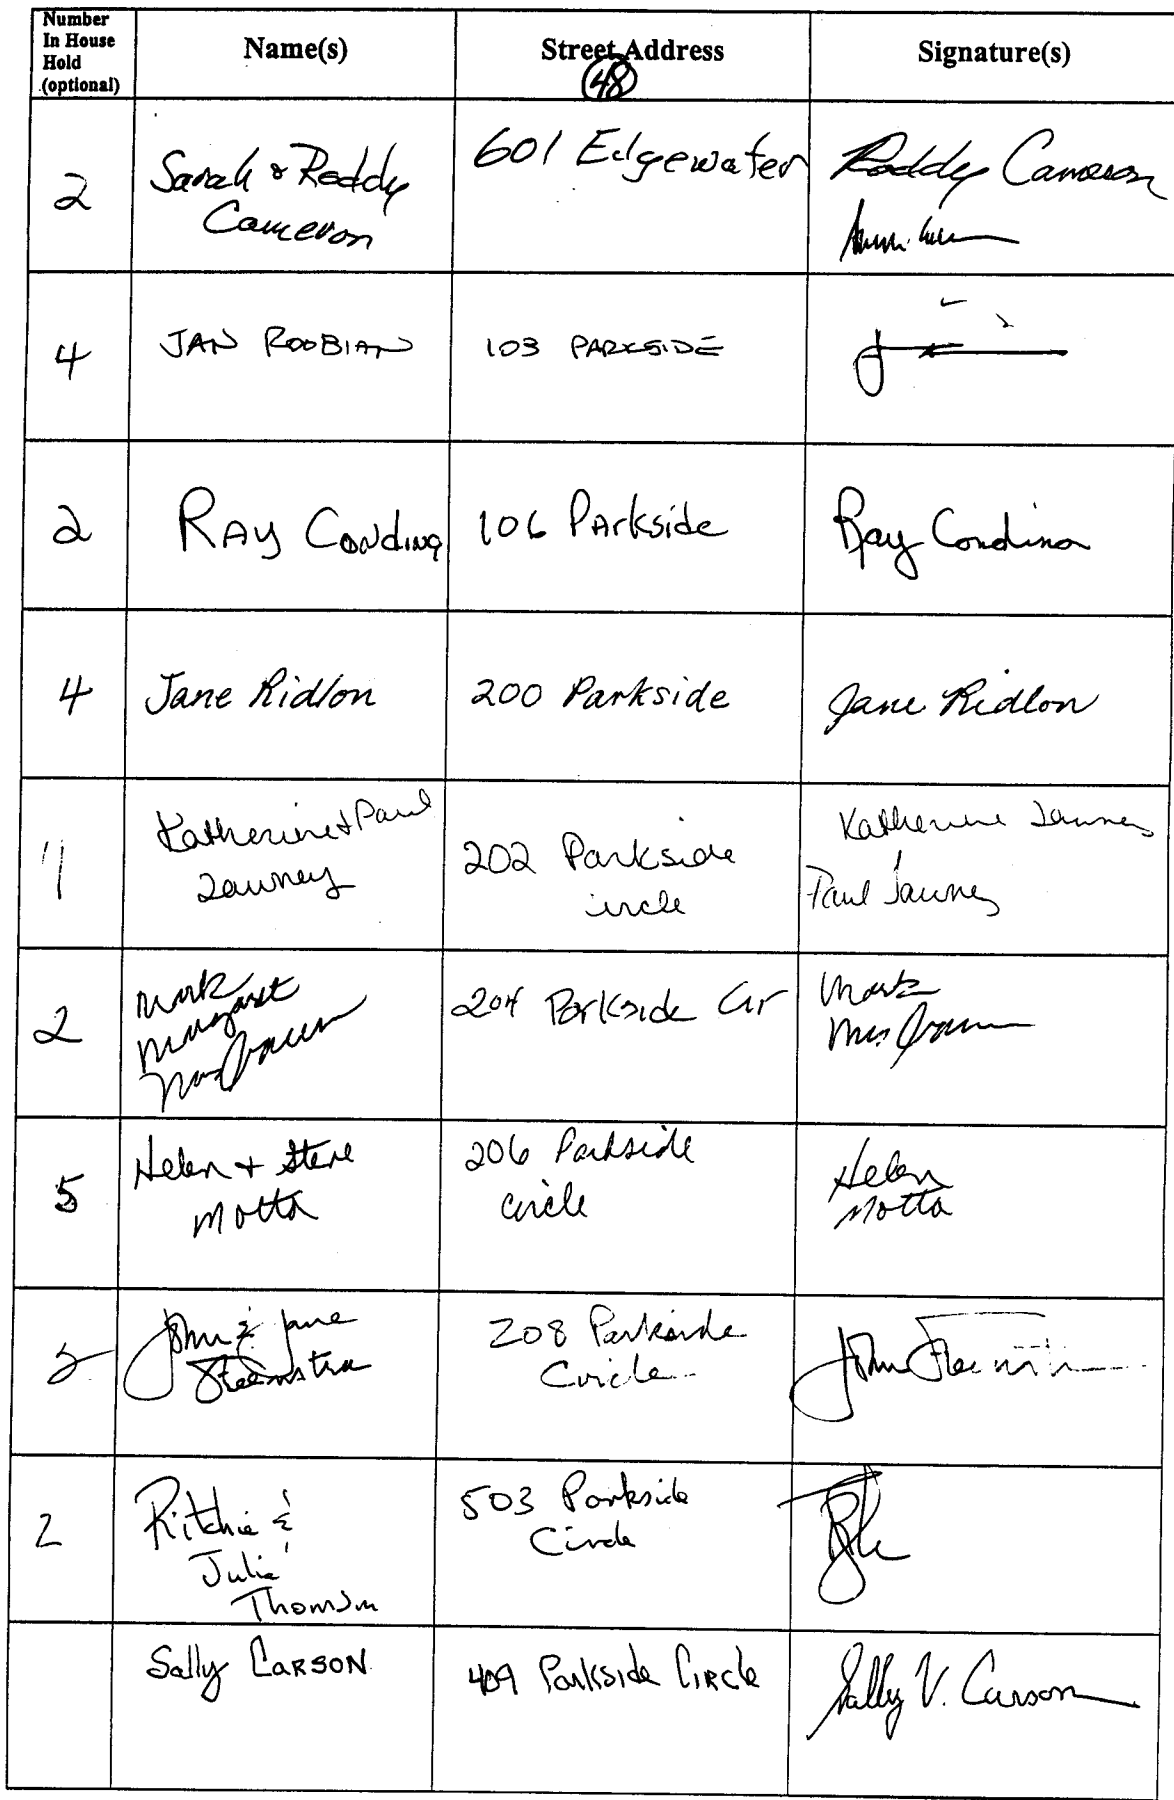 Number
In House
Hold
(optional)
Name(s)
Street Address
48
Signature(s)
2
Sarah & Roddy
Cameron
601 Edgewater
Roddy Cameron
4
JAN ROOBIAN
103 PARKSIDE
2
RAY Condino
106 Parkside
Ray Condino
4
Jane Ridlon
200 Parkside
Jane Ridlon
Katherine + Paul
202 Parkside
circle
Katherine
Paul
2
Mark
Margaret
204 Parkside Cir
Mark
5
Helen + Steve
Motta
206 Parkside
circle
Helen
Motta
John & Jane
Steenstra
208 Parkside
Circle
John Steenstra
2
Ritchie &
Julie
Thomson
503 Parkside
Circle
Sally CARSON
409 Parkside CIRCle
Sally V. Carson